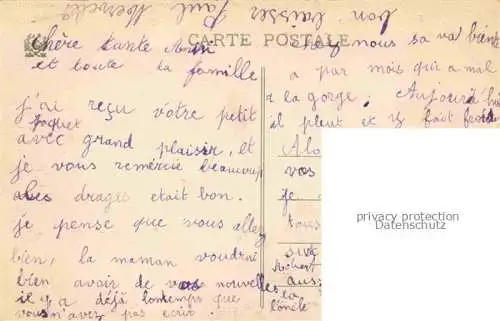 bon baiser Paul
CARTE POSTALE
Chère tante
et toute la famille
j'ai reçu vôtre petit
paquet
avec grand plaisir, et
je vous remercie beaucoup
Les drages etait bon.
je pense que vous allez
bien, la maman voudrai
bien avoir de vos nouvelles
il y a déjà lontemps que
vous n'avez pas ecrir.
chez nous sa va bien
a par mois qui a mal
a la gorge. Aujourd'hi
il pleut et il fait froid
Alo
vos
je
tous
Robert
aus
la
privacy protection
Datenschutz